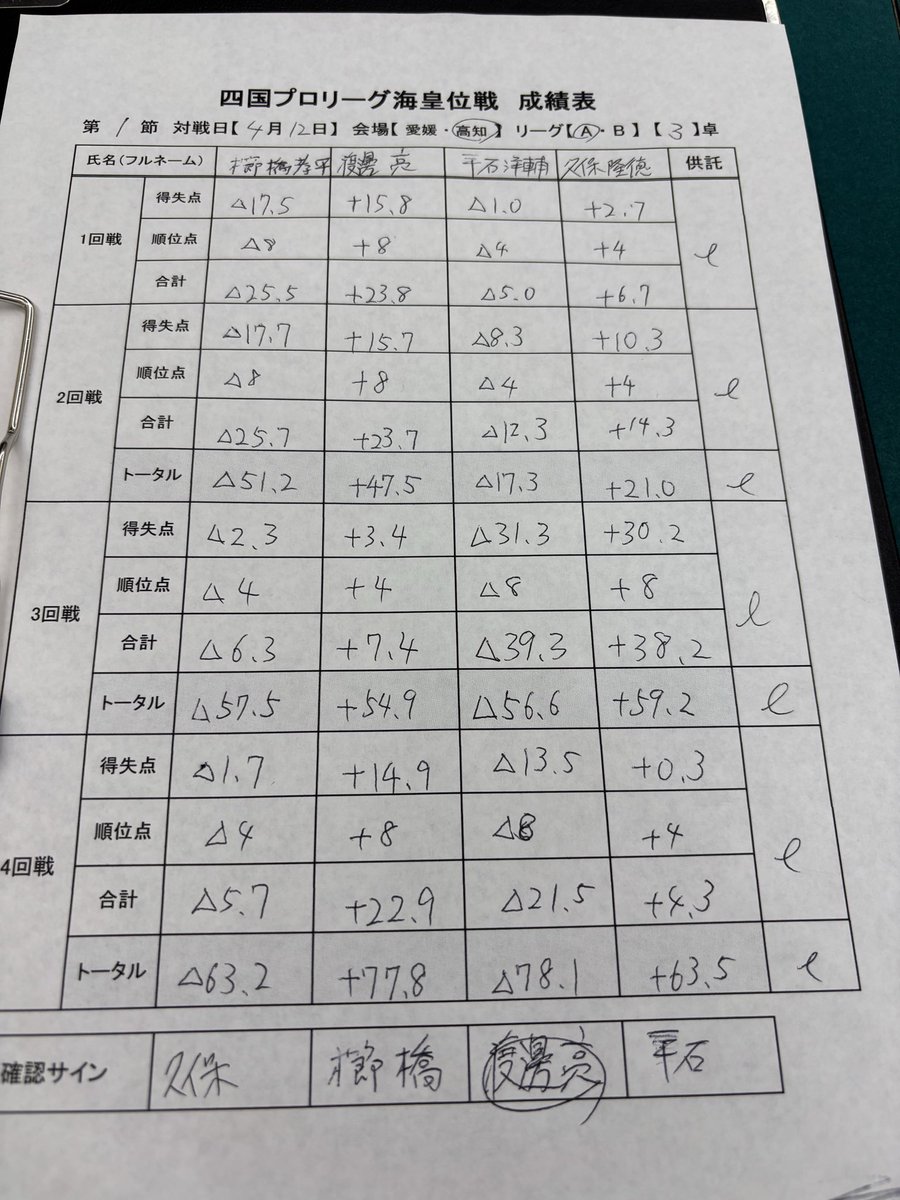 四国プロリーグ海皇位戦 成績表
第1節 対戦日【4月12日】 会場【愛媛・高知】 リーグ【A・B】【3】卓
氏名(フルネーム) 櫛橋孝平 渡邊 亮 平石洋輔 久保隆徳 供託
1回戦
得失点 △17.5 +15.8 △1.0 +2.7
順位点 △8 +8 △4 +4
合計 △25.5 +23.8 △5.0 +6.7
2回戦
得失点 △17.7 +15.7 △8.3 +10.3
順位点 △8 +8 △4 +4
合計 △25.7 +23.7 △12.3 +14.3
トータル △51.2 +47.5 △17.3 +21.0
3回戦
得失点 △2.3 +3.4 △31.3 +30.2
順位点 △4 +4 △8 +8
合計 △6.3 +7.4 △39.3 +38.2
トータル △57.5 +54.9 △56.6 +59.2
4回戦
得失点 △1.7 +14.9 △13.5 +0.3
順位点 △4 +8 △8 +4
合計 △5.7 +22.9 △21.5 +4.3
トータル △63.2 +77.8 △78.1 +63.5
確認サイン 久保 櫛橋 渡邊亮 平石